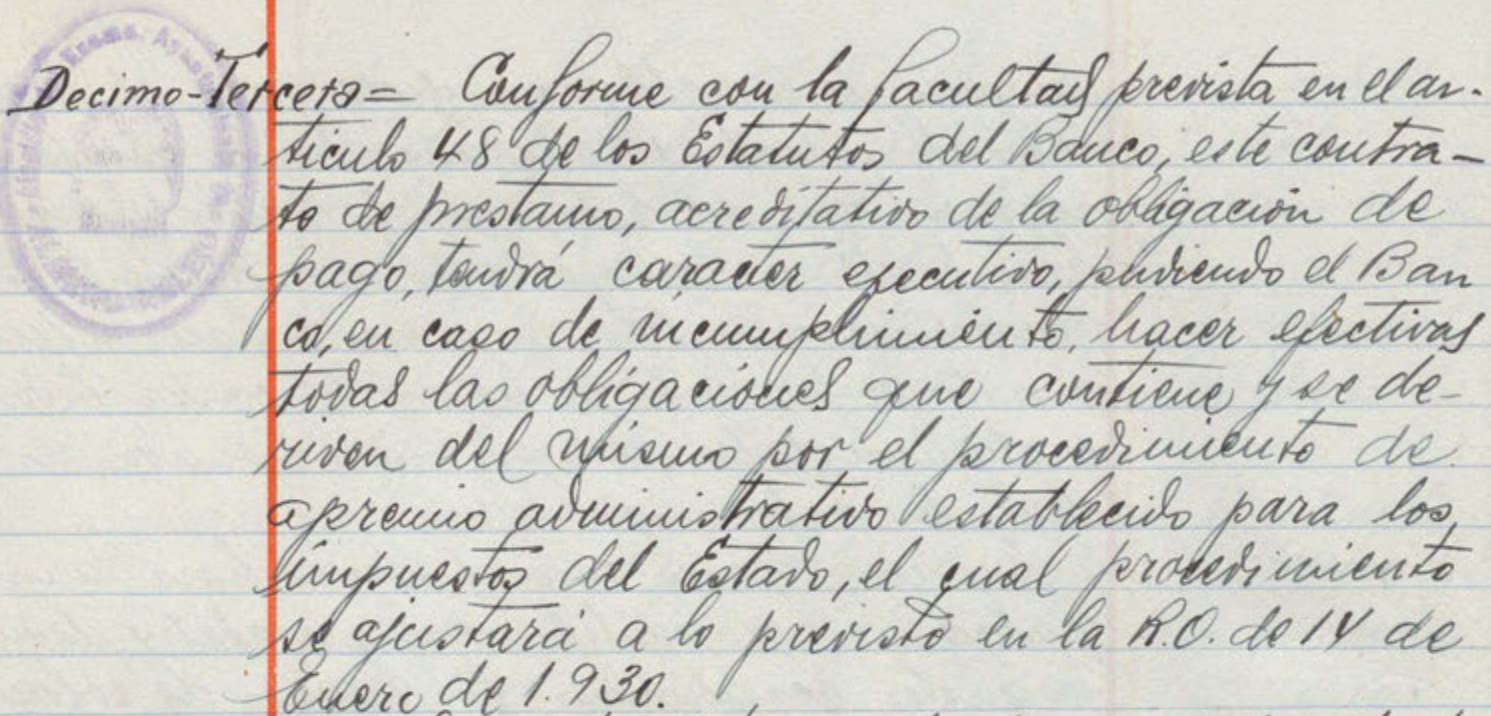 Decimo-Tercera= Conforme con la facultad prevista en el ar-
ticulo 48 de los Estatutos del Banco, este contra-
to de prestamo, acreditativo de la obligación de
pago, tendrá caracter ejecutivo, pudiendo el Ban
co, en caso de incumplimiento, hacer efectivas
todas las obligaciones que contiene y se de-
riven del mismo por el procedimiento de
apremio administrativo establecido para los
impuestos del Estado, el cual procedimiento
se ajustará a lo previsto en la R.O. de 14 de
Enero de 1.930.